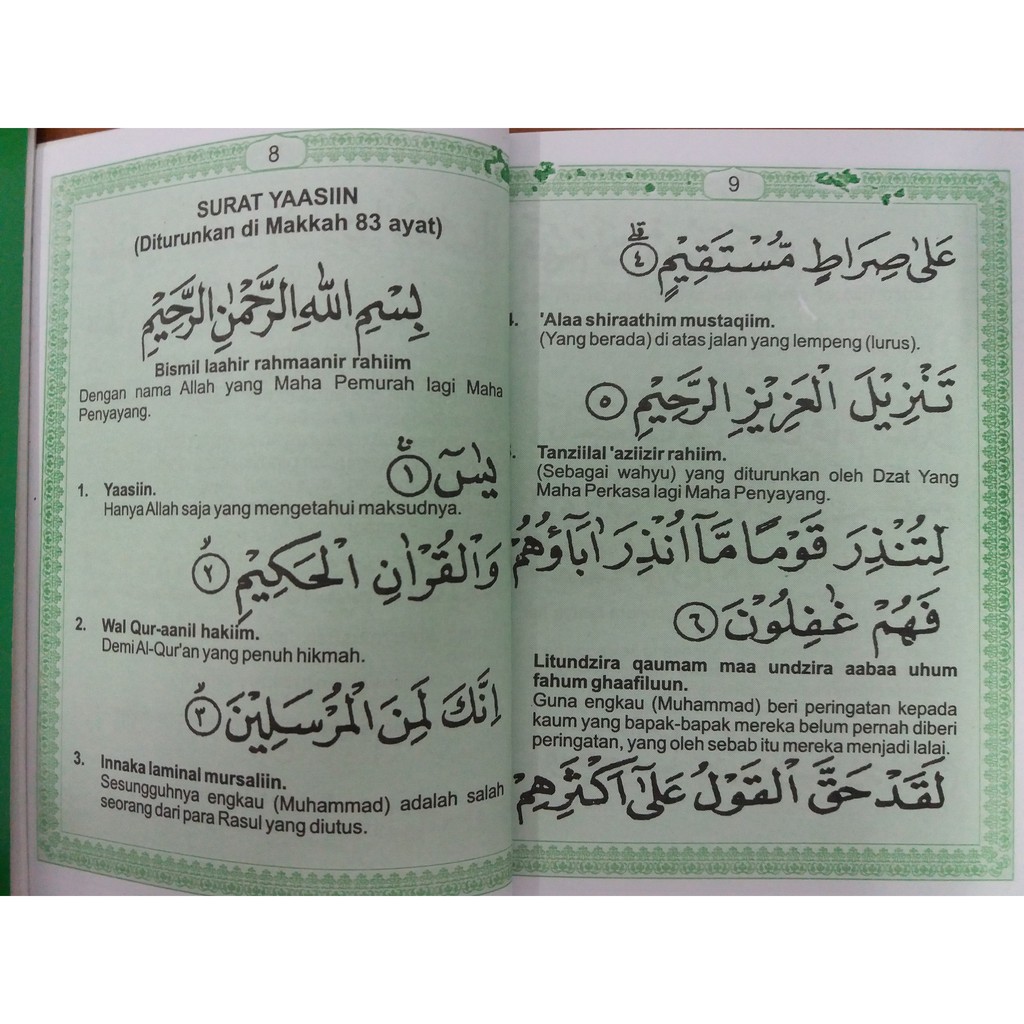 8
SURAT YAASIIN
(Diturunkan di Makkah 83 ayat)
بِسْمِ اللّٰهِ الرَّحْمٰنِ الرَّحِيْمِ
Bismil laahir rahmaanir rahiim
Dengan nama Allah yang Maha Pemurah lagi Maha
Penyayang.
يٰسۤ ۚ ١
1. Yaasiin.
Hanya Allah saja yang mengetahui maksudnya.
وَالْقُرْاٰنِ الْحَكِيْمِ ۙ ٢
2. Wal Qur-aanil hakiim.
Demi Al-Qur'an yang penuh hikmah.
اِنَّكَ لَمِنَ الْمُرْسَلِيْنَ ۙ ٣
3. Innaka laminal mursaliin.
Sesungguhnya engkau (Muhammad) adalah salah
seorang dari para Rasul yang diutus.
9
عَلٰى صِرَاطٍ مُّسْتَقِيْمٍ ۗ ٤
4. 'Alaa shiraathim mustaqiim.
(Yang berada) di atas jalan yang lempeng (lurus).
تَنْزِيْلَ الْعَزِيْزِ الرَّحِيْمِ ٥
Tanziilal 'aziizir rahiim.
(Sebagai wahyu) yang diturunkan oleh Dzat Yang
Maha Perkasa lagi Maha Penyayang.
لِتُنْذِرَ قَوْمًا مَّآ اُنْذِرَ اٰبَاۤؤُهُمْ
فَهُمْ غٰفِلُوْنَ ٦
Litundzira qaumam maa undzira aabaa uhum
fahum ghaafiluun.
Guna engkau (Muhammad) beri peringatan kepada
kaum yang bapak-bapak mereka belum pernah diberi
peringatan, yang oleh sebab itu mereka menjadi lalai.
لَقَدْ حَقَّ الْقَوْلُ عَلٰٓى اَكْثَرِهِمْ